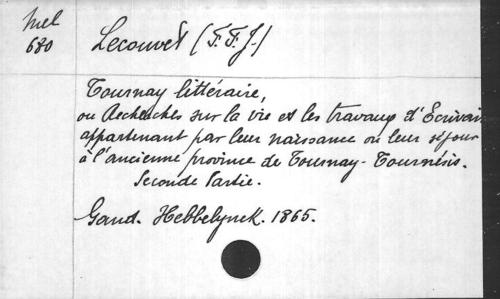 Mel
680
Lecouvet (F.F.J.)
Tournay littéraire,
ou Recherches sur la vie et les travaux d'Ecrivains
appartenant par leur naissance ou leur séjour
à l'ancienne province de Tournay-Tournésis.
Seconde Partie.
Gand. Hebbelynck. 1865.